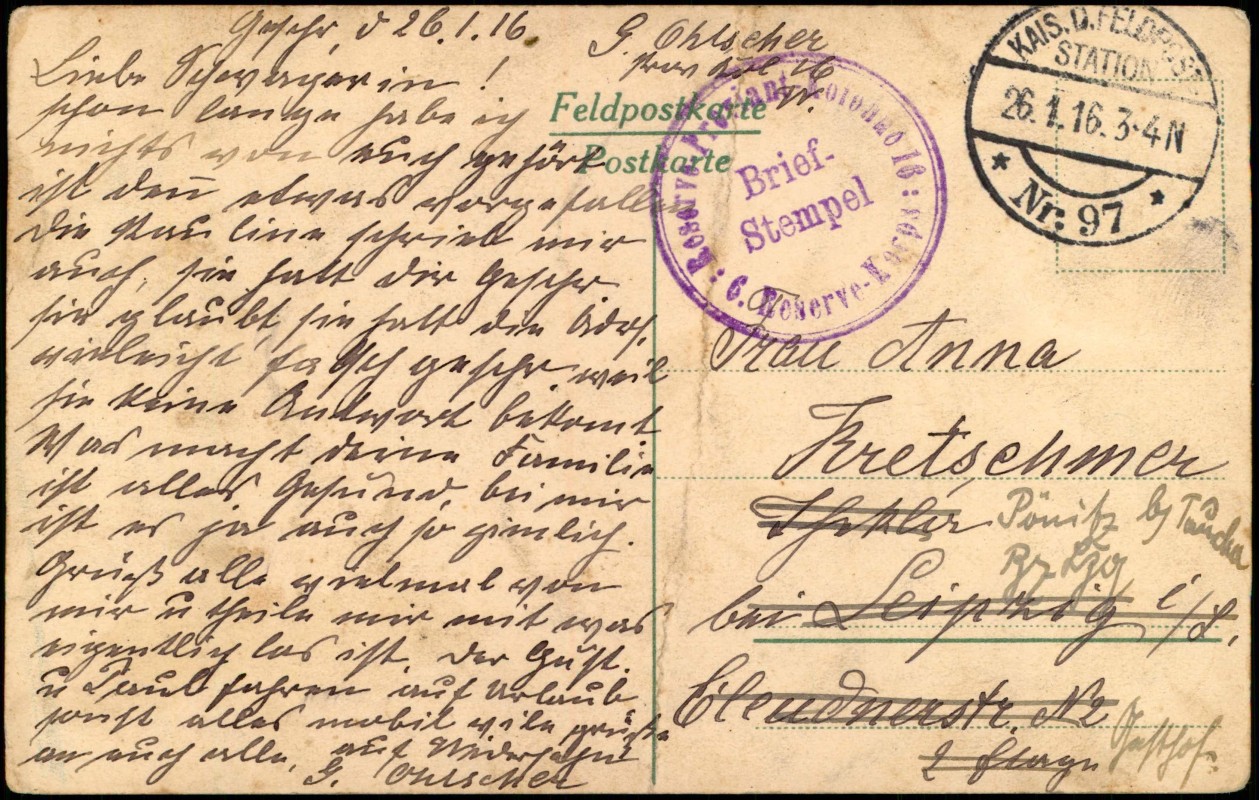 Geschr, d 26.1.16.
Liebe Schwagerin!
schon lange habe ich
nichts von euch gehört
ist den̄ etwas vorgefallen
die Pauline schrieb mir
auch, sie hatt dir geschr
sie glaubt, sie hatt die Adrs.
vieleicht falsch geschr. weil
sie keine Antwort bekomt
Was macht deine Familie
ist alles Gesund, bei mir
ist es ja auch so zimlich.
Grüß alle vielmal von
mir u theile mir mit was
eigentlich los ist. Der Gust.
u Paul fahren auf Urlaub
sonst alles mobil viele grüße
an euch alle, auf Wiedersehn
G. Ohlscher
G. Ohlscher
Prov Kol 16
Feldpostkarte
Postkarte
Reserve Proviant Kolonne 16
Brief-
Stempel
6. Reserve-Korps
KAIS. D. FELDPOST
STATION
26.1.16. 3-4N
Nr. 97
Frau Anna
Kretschmer
Thekla
Pönitz b/ Taucha
Bz Lzg
bei Leipzig i/S.
Cleudnerstr. No
2 Etage
Gasthof